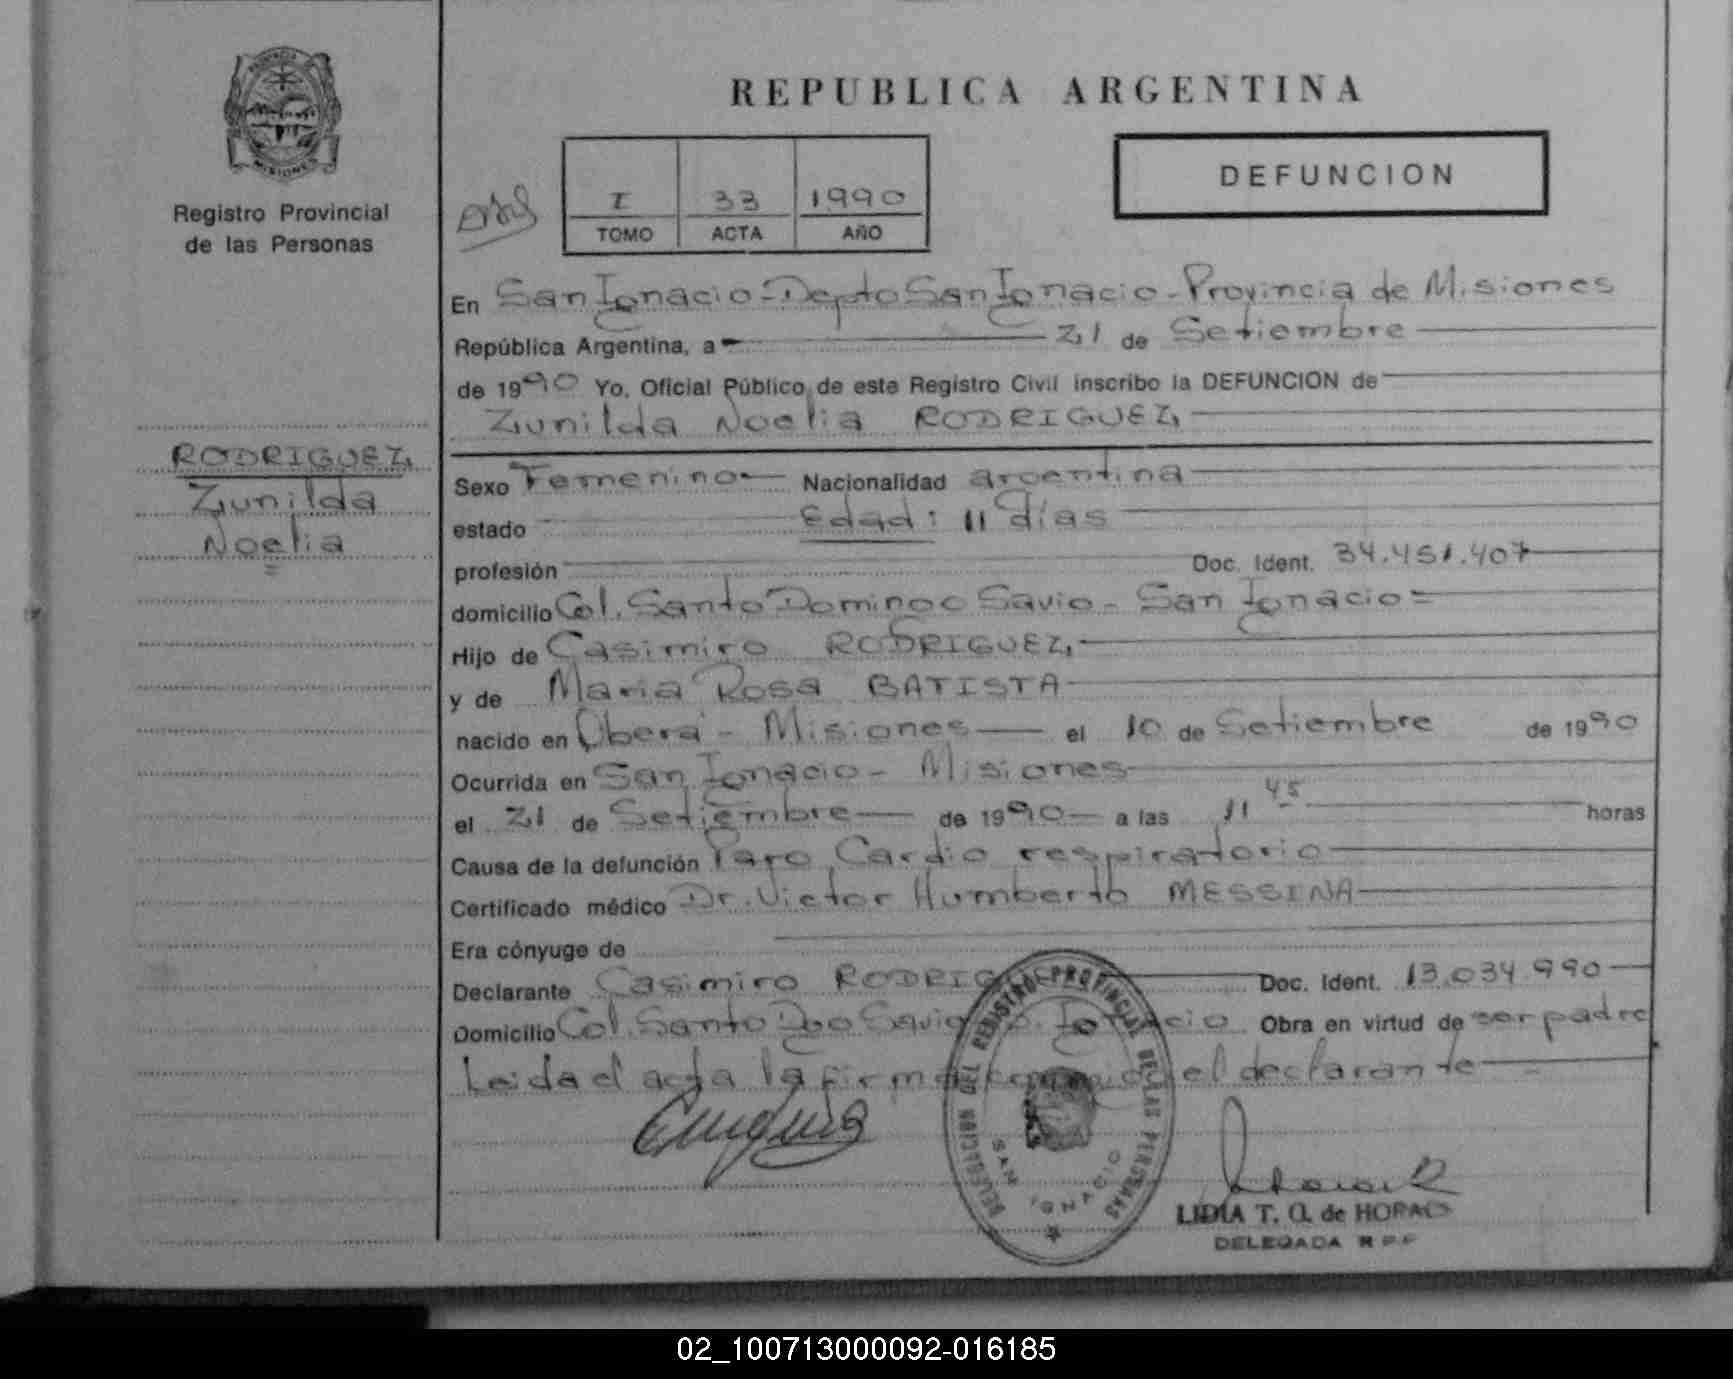 PROVINCIA
MISIONES
Registro Provincial
de las Personas
RODRIGUEZ,
Zunilda
Noelia
REPUBLICA ARGENTINA
DEFUNCION
I 33 1990
TOMO ACTA AÑO
En San Ignacio-Depto San Ignacio-Provincia de Misiones
República Argentina, a 21 de Setiembre
de 1990 Yo, Oficial Público de este Registro Civil inscribo la DEFUNCION de
Zunilda Noelia RODRIGUEZ,
Sexo Femenino Nacionalidad argentina
estado Edad: 11 días
profesión Doc. Ident. 34.451.407
domicilio Col. Santo Domingo Savio - San Ignacio=
Hijo de Casimiro RODRIGUEZ,
y de Maria Rosa BATISTA
nacido en Oberá - Misiones el 10 de Setiembre de 1990
Ocurrida en San Ignacio - Misiones
el 21 de Setiembre de 1990 a las 11 45 horas
Causa de la defunción Paro Cardio respiratorio
Certificado médico Dr. Victor Humberto MESSINA
Era cónyuge de
Declarante Casimiro RODRIGUEZ Doc. Ident. 13.034.990
Domicilio Col. Santo Dgo Savio S. Ignacio Obra en virtud de ser padre
Leida el acta la firma conmigo el declarante
DELEGACION DEL REGISTRO PROVINCIAL DE LAS PERSONAS
SAN IGNACIO
LIDIA T. O. de HORAC
DELEGADA R P P
02_100713000092-016185